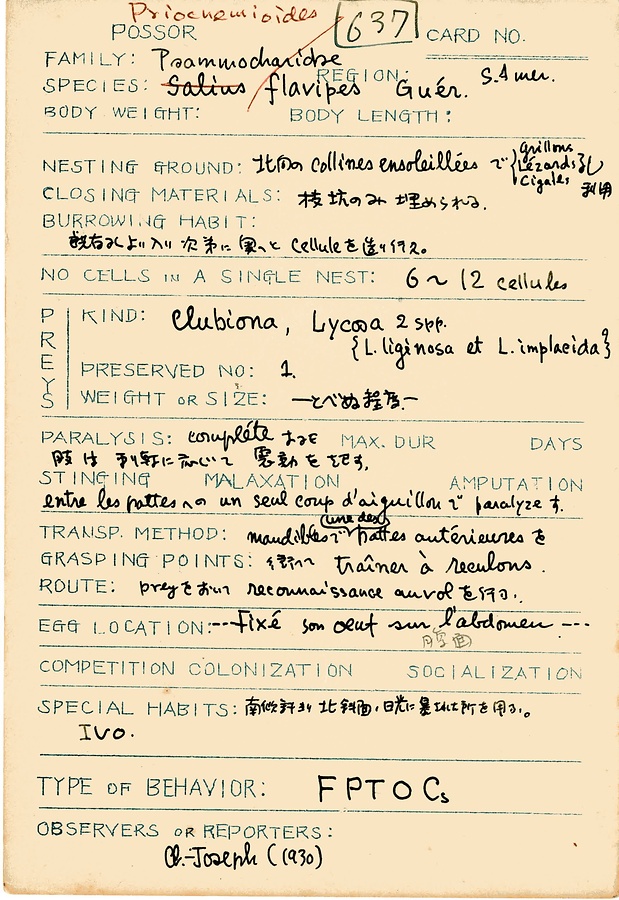 Priocnemioides
637
POSSOR CARD NO.
FAMILY: Psammocharidae
SPECIES: Salius flavipes Guér. REGION: S.Amer.
BODY WEIGHT: BODY LENGTH:
NESTING GROUND: 北向の collines ensoleillées で {grillons
Lézards
Cigales} 利用
CLOSING MATERIALS: 枝坑のみ埋められる.
BURROWING HABIT:
次第に Cellule を造り行く。
NO CELLS IN A SINGLE NEST: 6~12 cellules
PREYS
KIND: Clubiona, Lycosa 2 spp.
{L. liginosa et L. implacida♀}
PRESERVED NO: 1.
WEIGHT OR SIZE: —とべぬ程度—
PARALYSIS: complète MAX. DUR DAYS
肢は刺軒に於いて震動を起す.
STINGING MALAXATION AMPUTATION
entre les pattes への un seul coup d'aiguillon で paralyze す.
TRANSP. METHOD: mandibles で une des pattes antérieures を
GRASPING POINTS: 銜へて traîner à reculons.
ROUTE: prey をおいて reconnaissance au vol を行ふ.
EGG LOCATION: --- Fixé son oeuf sur l'abdomen ---
腹面
COMPETITION COLONIZATION SOCIALIZATION
SPECIAL HABITS: 南傾斜より北斜面, 日光に暴れた所を用る。
IVO.
TYPE OF BEHAVIOR: FPTOCs
OBSERVERS OR REPORTERS:
Cl.-Joseph (1930)